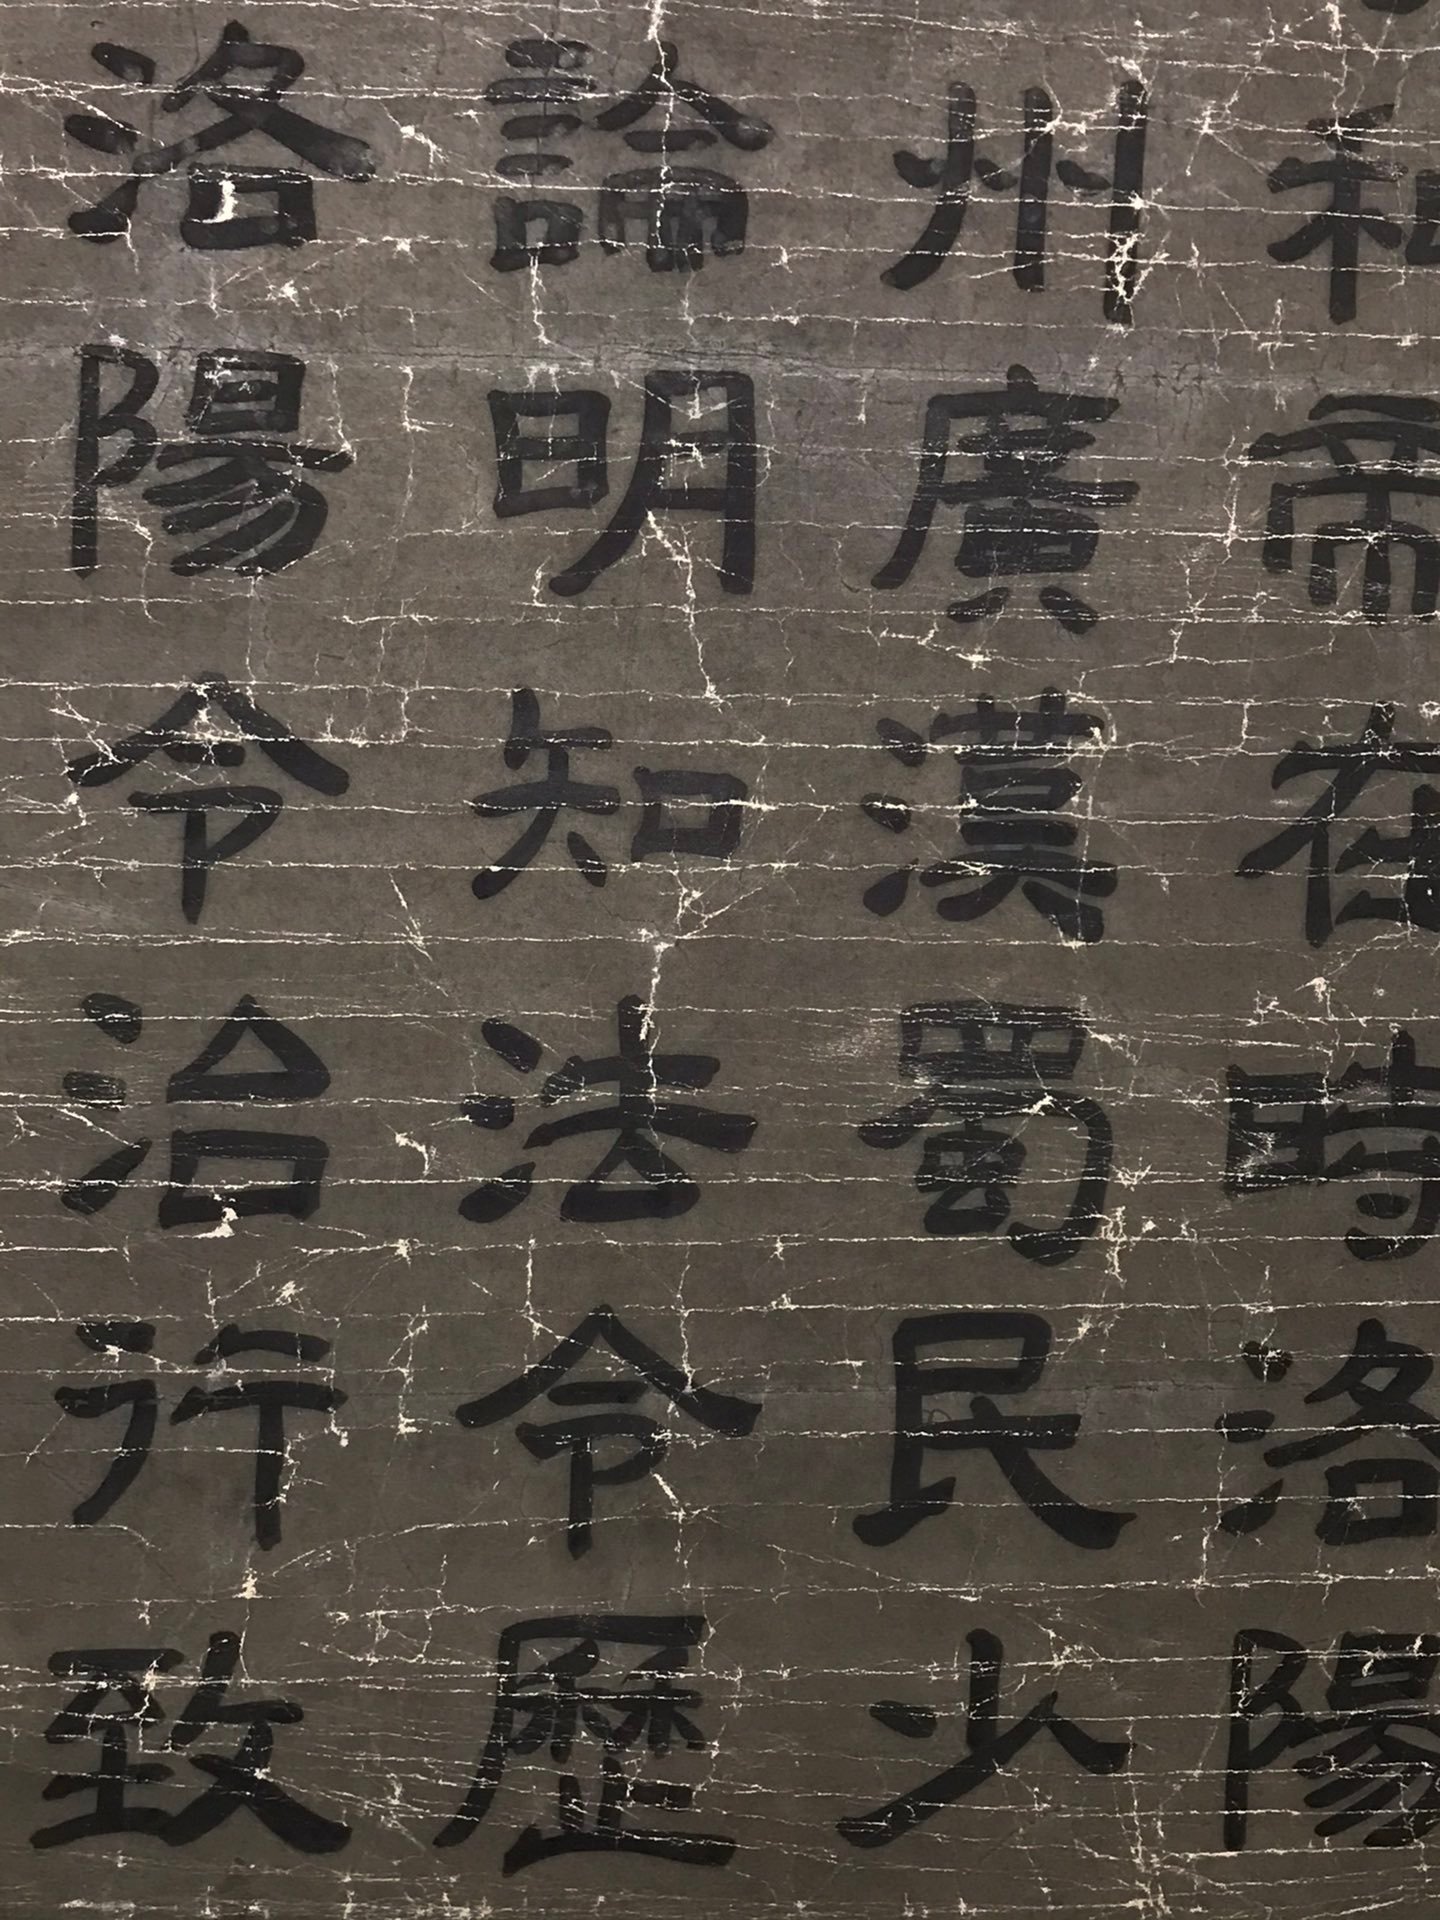 和帝在時洛陽
州廣漢蜀民少
論明知法令歷
洛陽令治行致